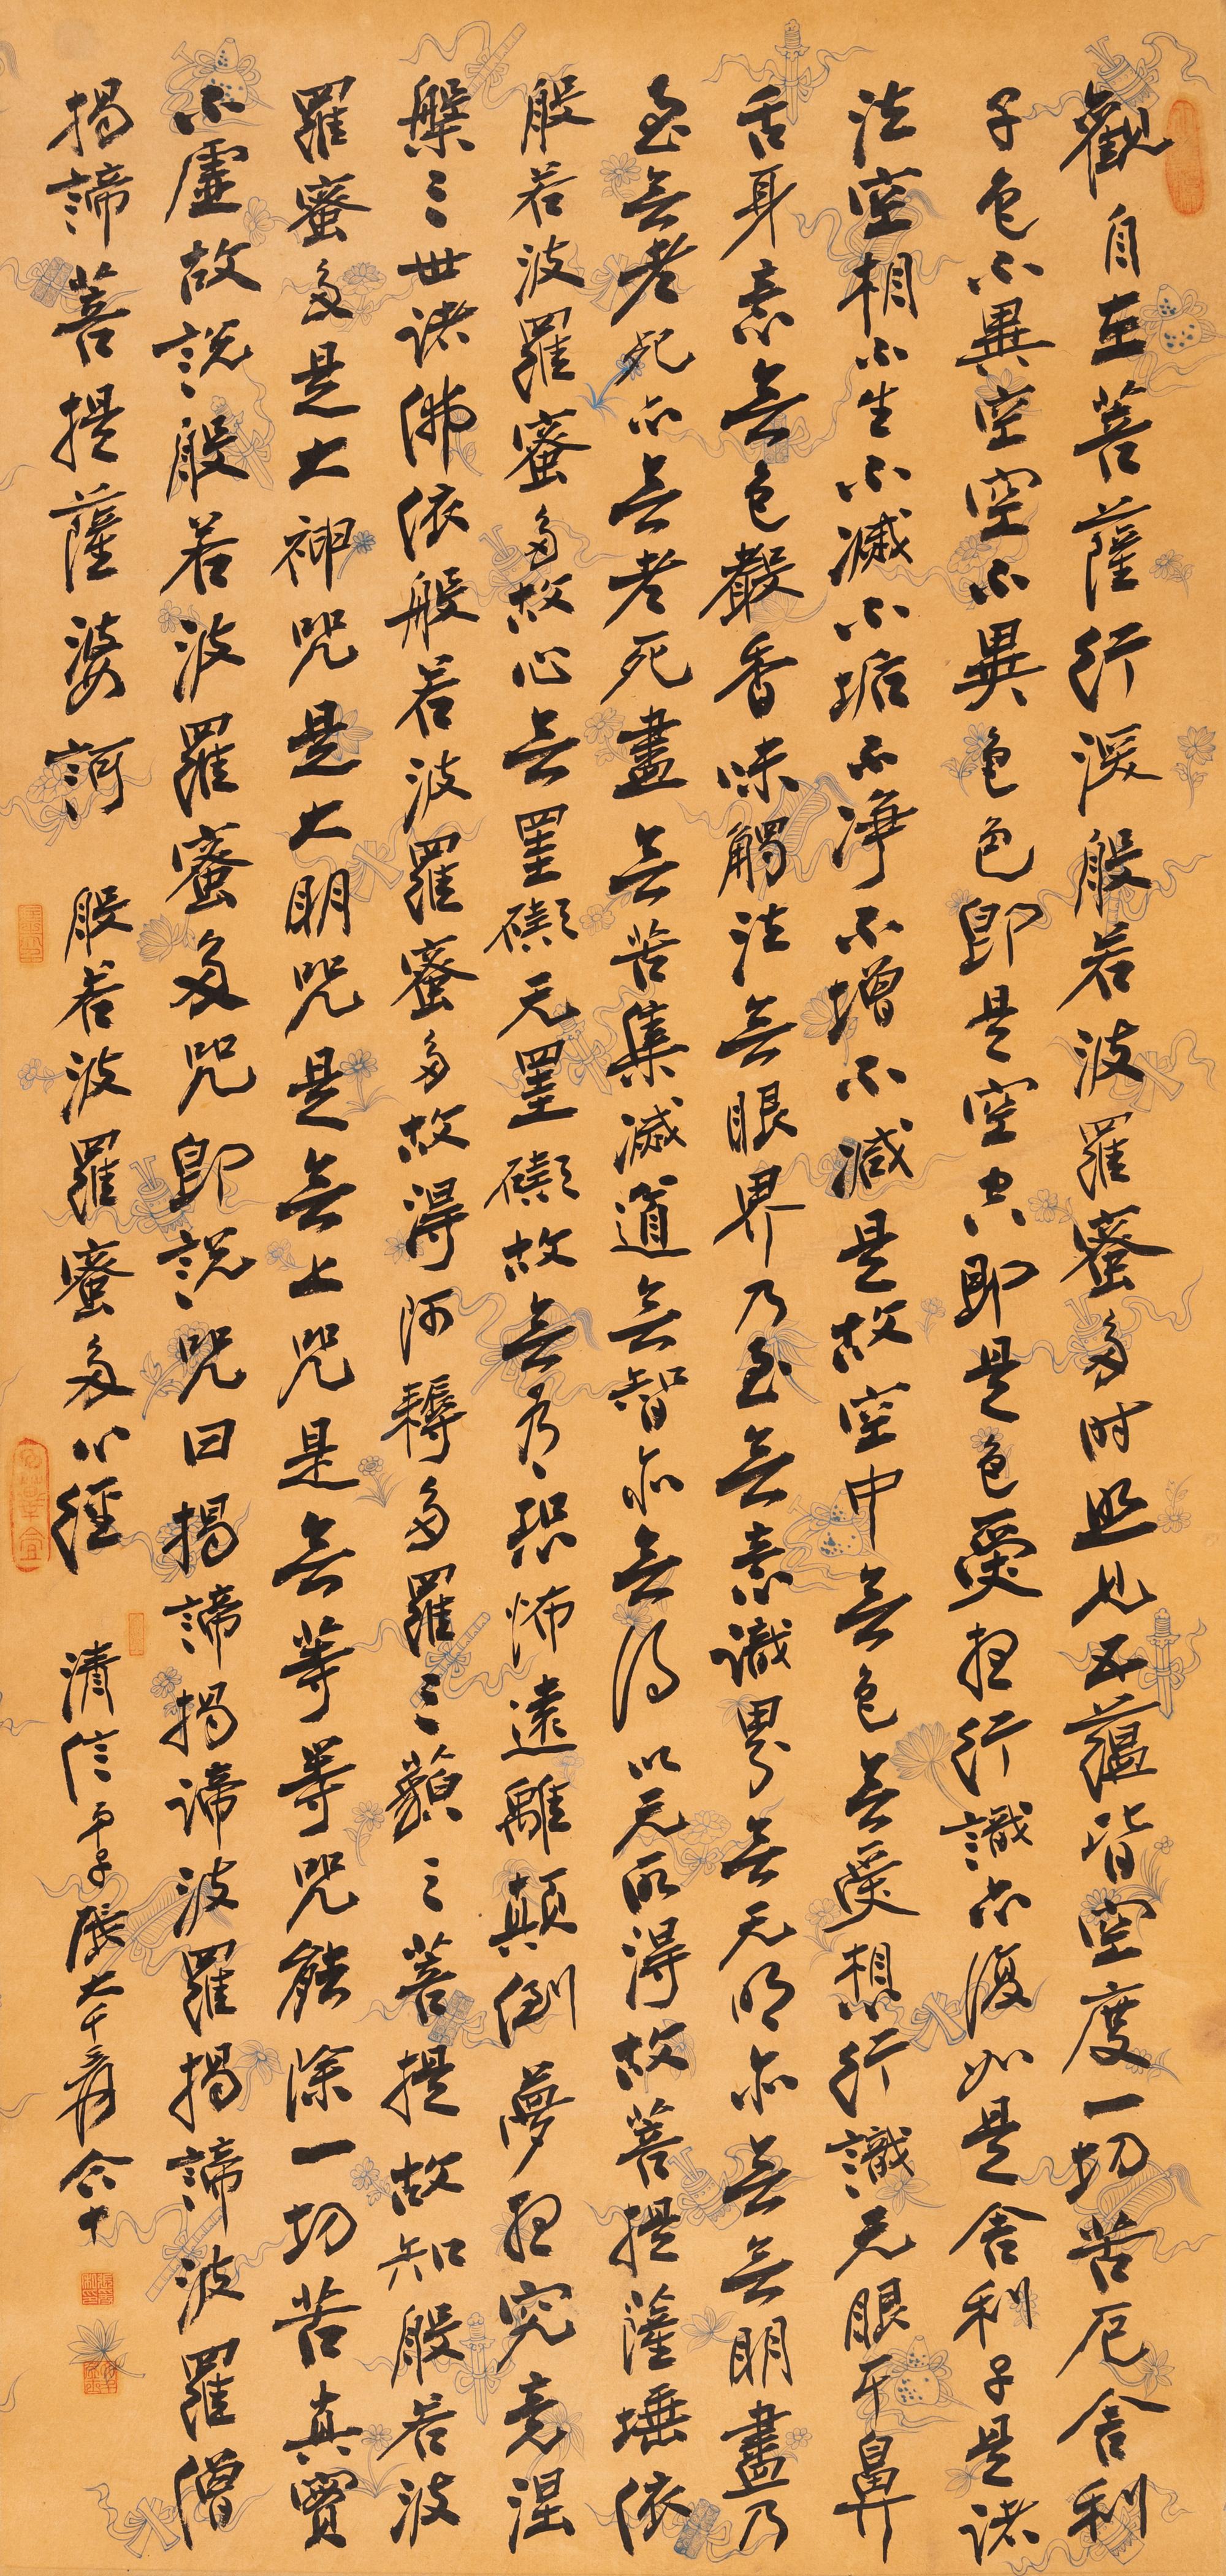 觀自在菩薩行深般若波羅蜜多時照見五蘊皆空度一切苦厄舍利
子色不異空空不異色色即是空空即是色受想行識亦復如是舍利子是諸
法空相不生不滅不垢不淨不增不減是故空中無色無受想行識无眼耳鼻
舌身意無色聲香味觸法無眼界乃至無意識界無无明亦無無明盡乃
至無老死亦無老死盡無苦集滅道無智亦無得以无所得故菩提薩埵依
般若波羅蜜多故心無罣礙无罣礙故無有恐怖遠離顛倒夢想究竟涅
槃三世諸佛依般若波羅蜜多故得阿耨多羅三藐三菩提故知般若波
羅蜜多是大神咒是大明咒是無上咒是無等等咒能除一切苦真實
不虛故說般若波羅蜜多咒即說咒曰揭諦揭諦波羅揭諦波羅僧
揭諦菩提薩婆訶 般若波羅蜜多心經 清信弟子張大千爰合十